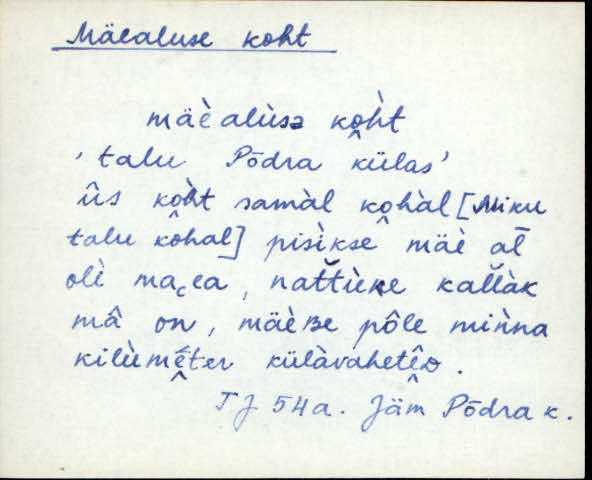 Mäealuse koht
mäè alùsə ko̭h̀t
'talu Põdra külas'
ûs ko̭h̀t samàl ko̭hàl [Miku
talu kôhal] pisìkse mäè at̄
olì maɢea, nat̆t̆ùke kal̆l̆àk
mâ on, mäèʙe pôle miǹna
kilùmḙ̂ter külàvahetêᴅ.
TJ 54a. Jäm Põdra k.